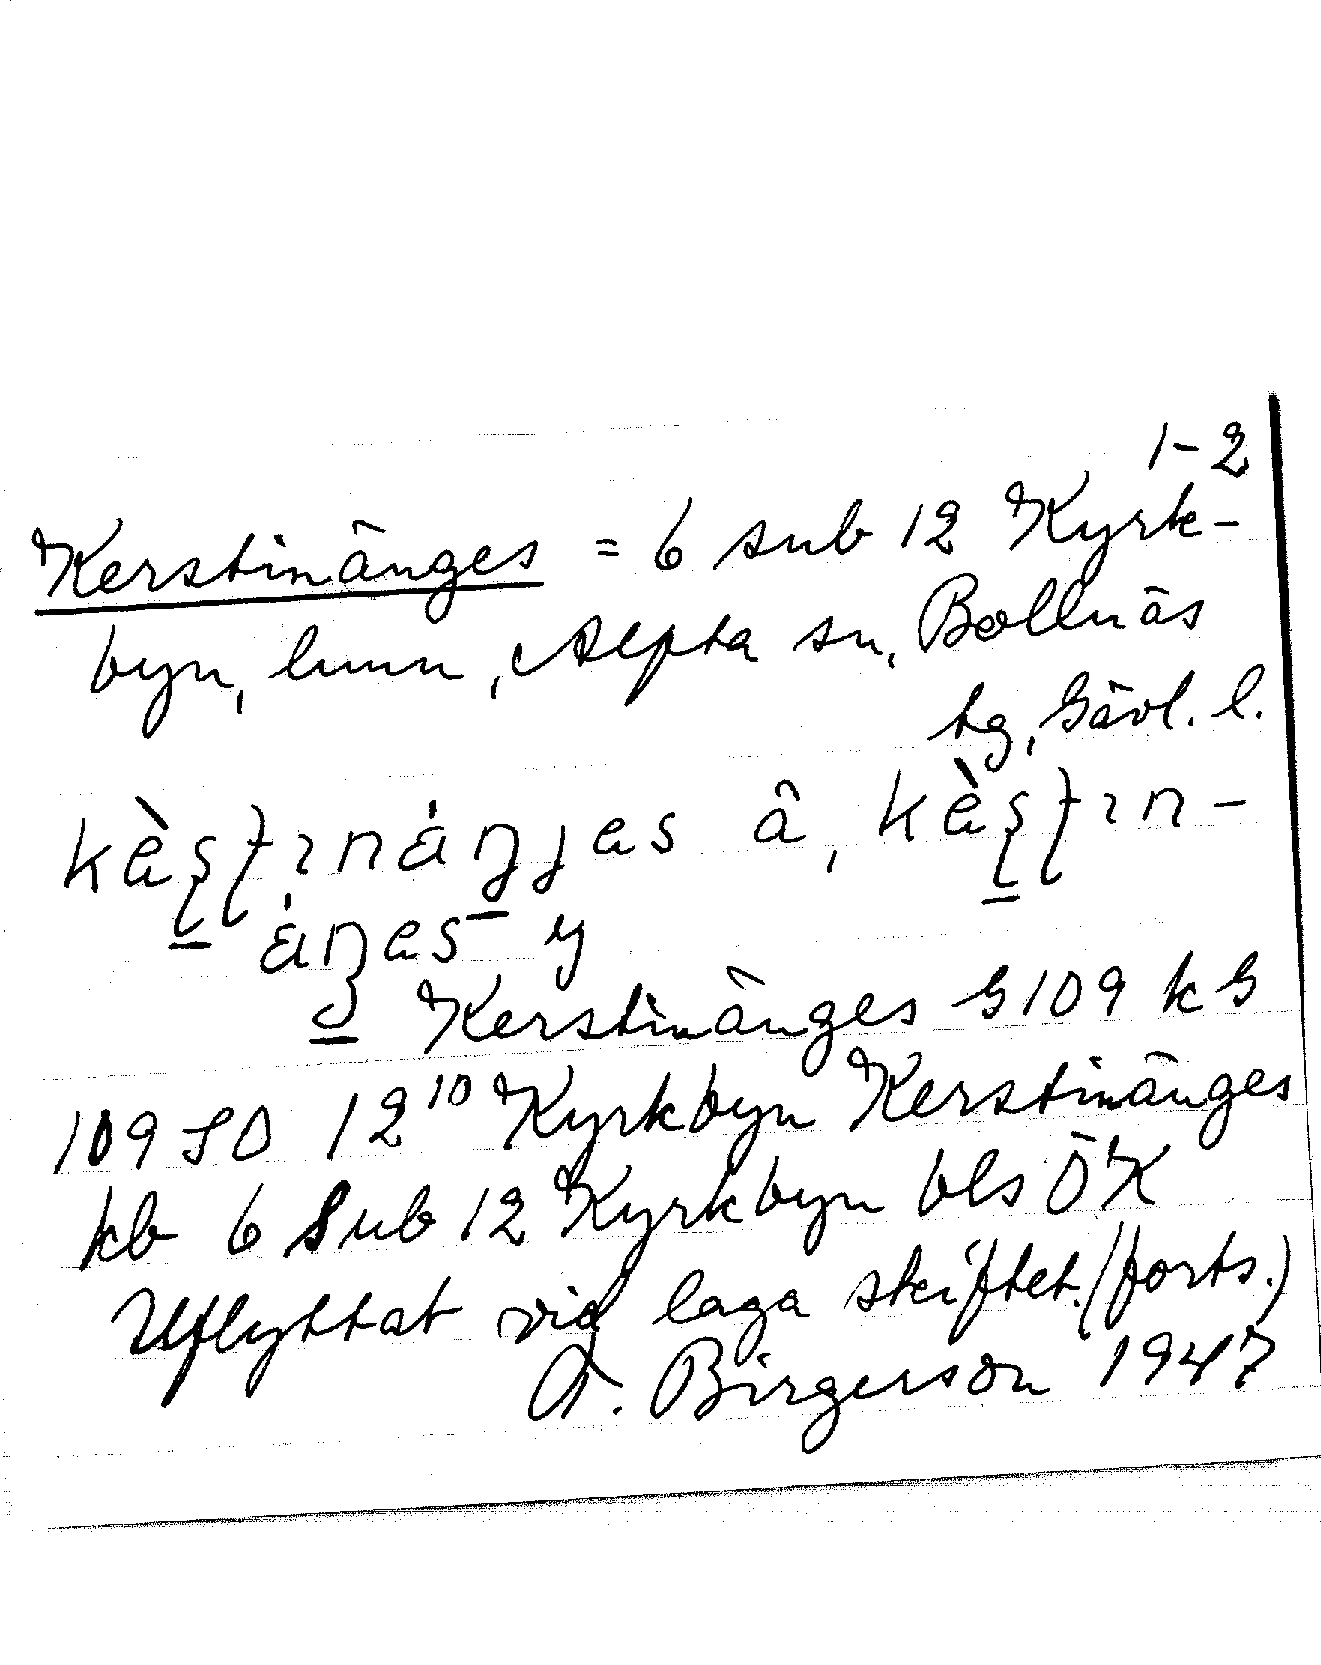 1-2
Kerstinänges = 6 sub 12 Kyrk-
byn, lmn, Alfta sn, Bollnäs
tg, Gävl. l.
kèʂʈınáŋɟes â, kèʂʈın-
áŋes y
Kerstinänges G109 kG
109 SD 12¹⁰ Kyrkbyn Kerstinänges
kb 6 Sub 12 Kyrkbyn bls ÖK
Utflyttat vid laga skiftet. (forts.)
A. Birgerson 1947